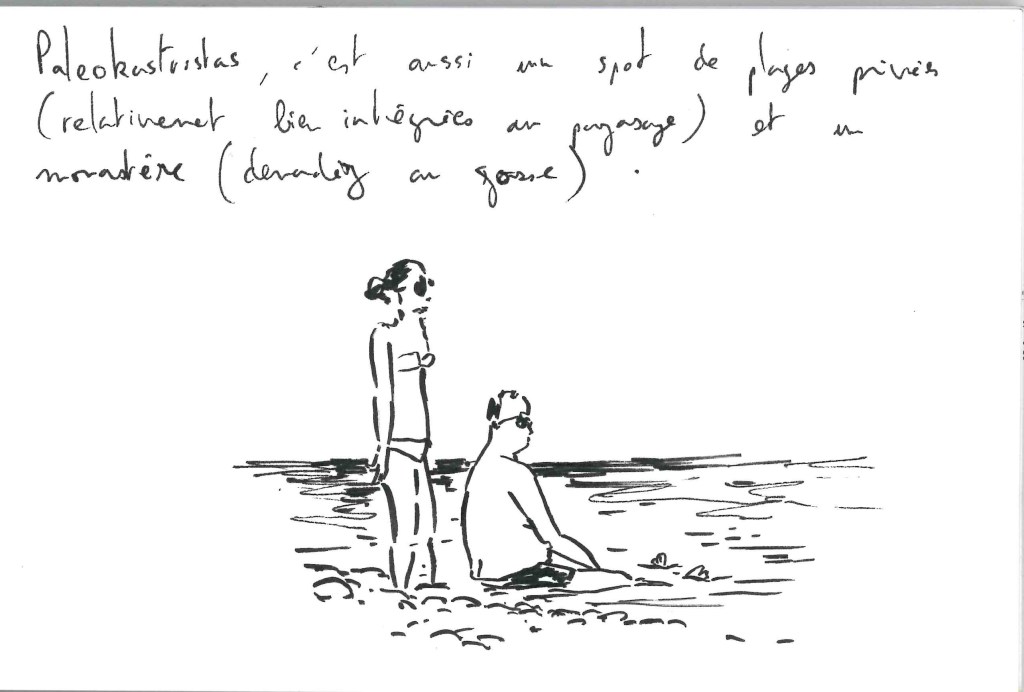 Paleokastristas, c'est aussi un spot de plages privées
(relativement bien intégrées au paysage) et un
monastère (demandez au gosse).